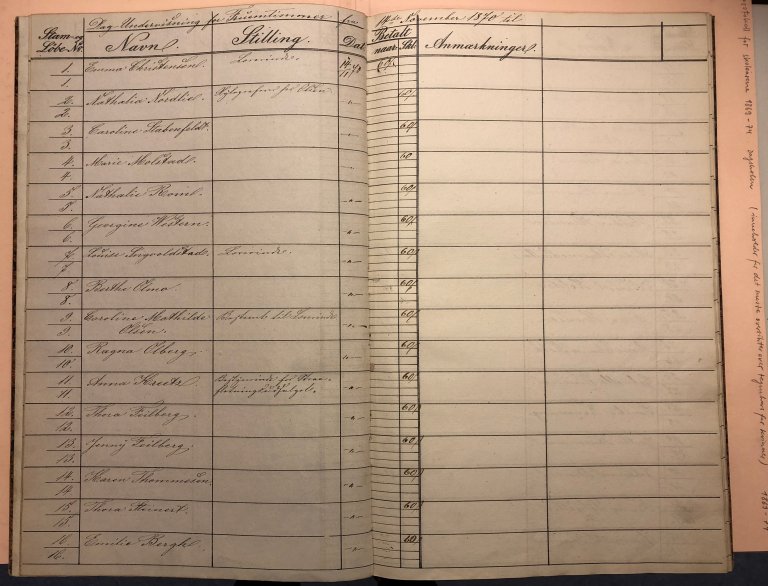 Dag-Undervisning for Fruentimmer fra 14de November 1870 til
Stam og Løbe No. Navn. Stilling. Dat. Betalt naar Skil. Anmærkninger.
1. 1. Emma Christensen. Lærerinde. 14/11
2. 2. Nathalia Nordlie. 60/
3. 3. Caroline Stabenfeldt. 60/
4. 4. Marie Molstad. 60
5. 5. Nathalie Roml. 60/
6. 6. Georgine Western. 60/
7. 7. Louise Ingvoldstad. Lærerinde. 60/
8. 8. Berthe Olmo. 60/
9. 9. Caroline Mathilde Lærerinde 60/
Olsen.
10. 10. Ragna Olberg. 60/
11. 11. Anna Kretz. 60/
12. 12. Thora Feilberg. 60/
13. 13. Jenny Feilberg. 60/
14. 14. Karen Thommesen. 60/
15. 15. Thora Steinert. 60/
16. 16. Emilie Bergh. 60/
protokoll for skolearene 1869-74 dagskolen (inneholder for det meste oversikter over tegnekurs for kvinner) 1869-74